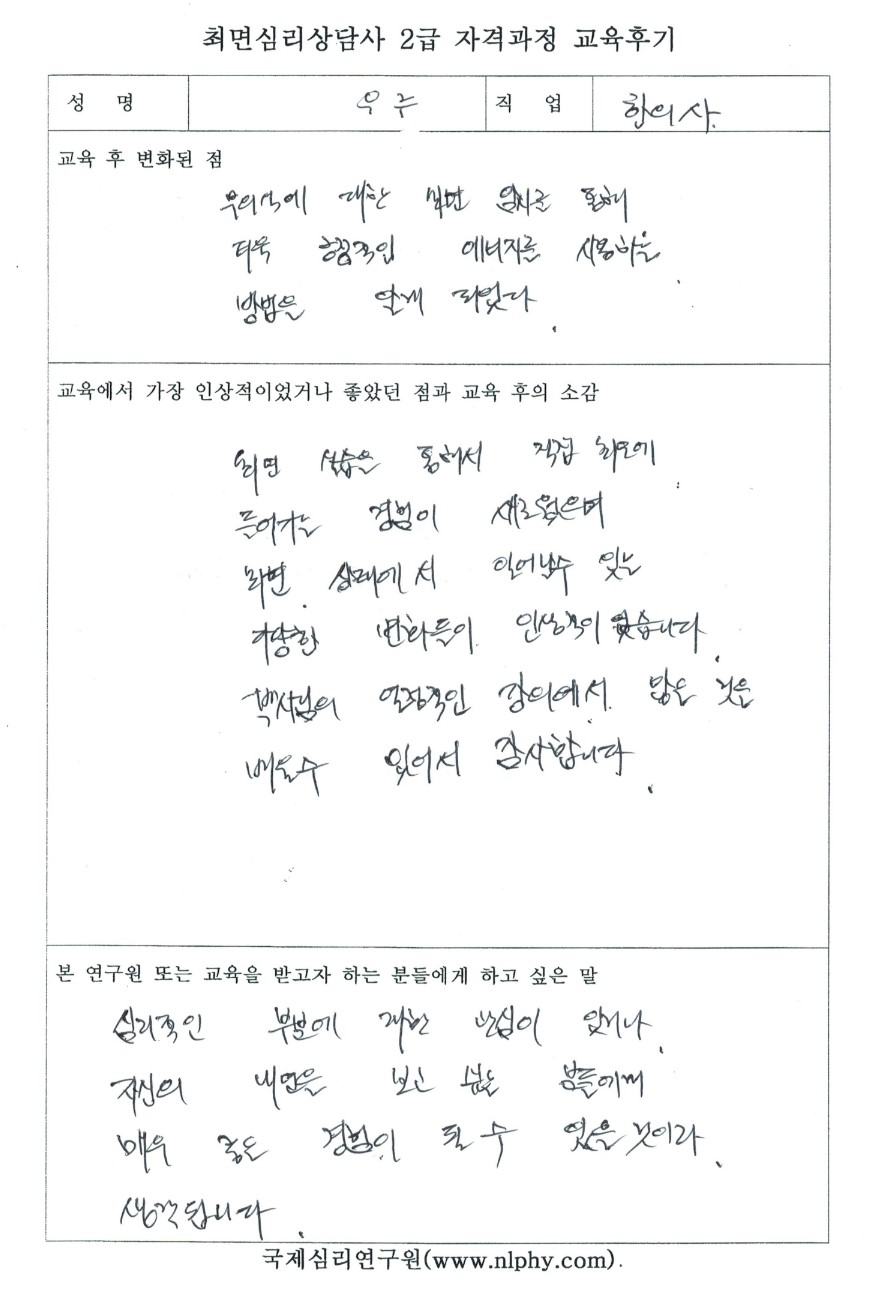 최면심리상담사 2급 자격과정 교육후기
성 명 우주 직 업 한의사.
교육 후 변화된 점
무의식에 대한 최면 암시를 통해
더욱 긍정적인 에너지를 사용하는
방법을 알게 되었다.
교육에서 가장 인상적이었거나 좋았던 점과 교육 후의 소감
최면 실습을 통해서 직접 최면에
들어가는 경험이 새로웠으며
최면 상태에서 일어날수 있는
다양한 변화들이 인상적이었습니다.
박사님의 열정적인 강의에서 많은 것을
배울수 있어서 감사합니다.
본 연구원 또는 교육을 받고자 하는 분들에게 하고 싶은 말
심리적인 부분에 대한 관심이 있거나,
자신의 내면을 보고 싶은 분들에게
매우 좋은 경험이 될 수 있을 것이라,
생각됩니다.
국제심리연구원(www.nlphy.com).